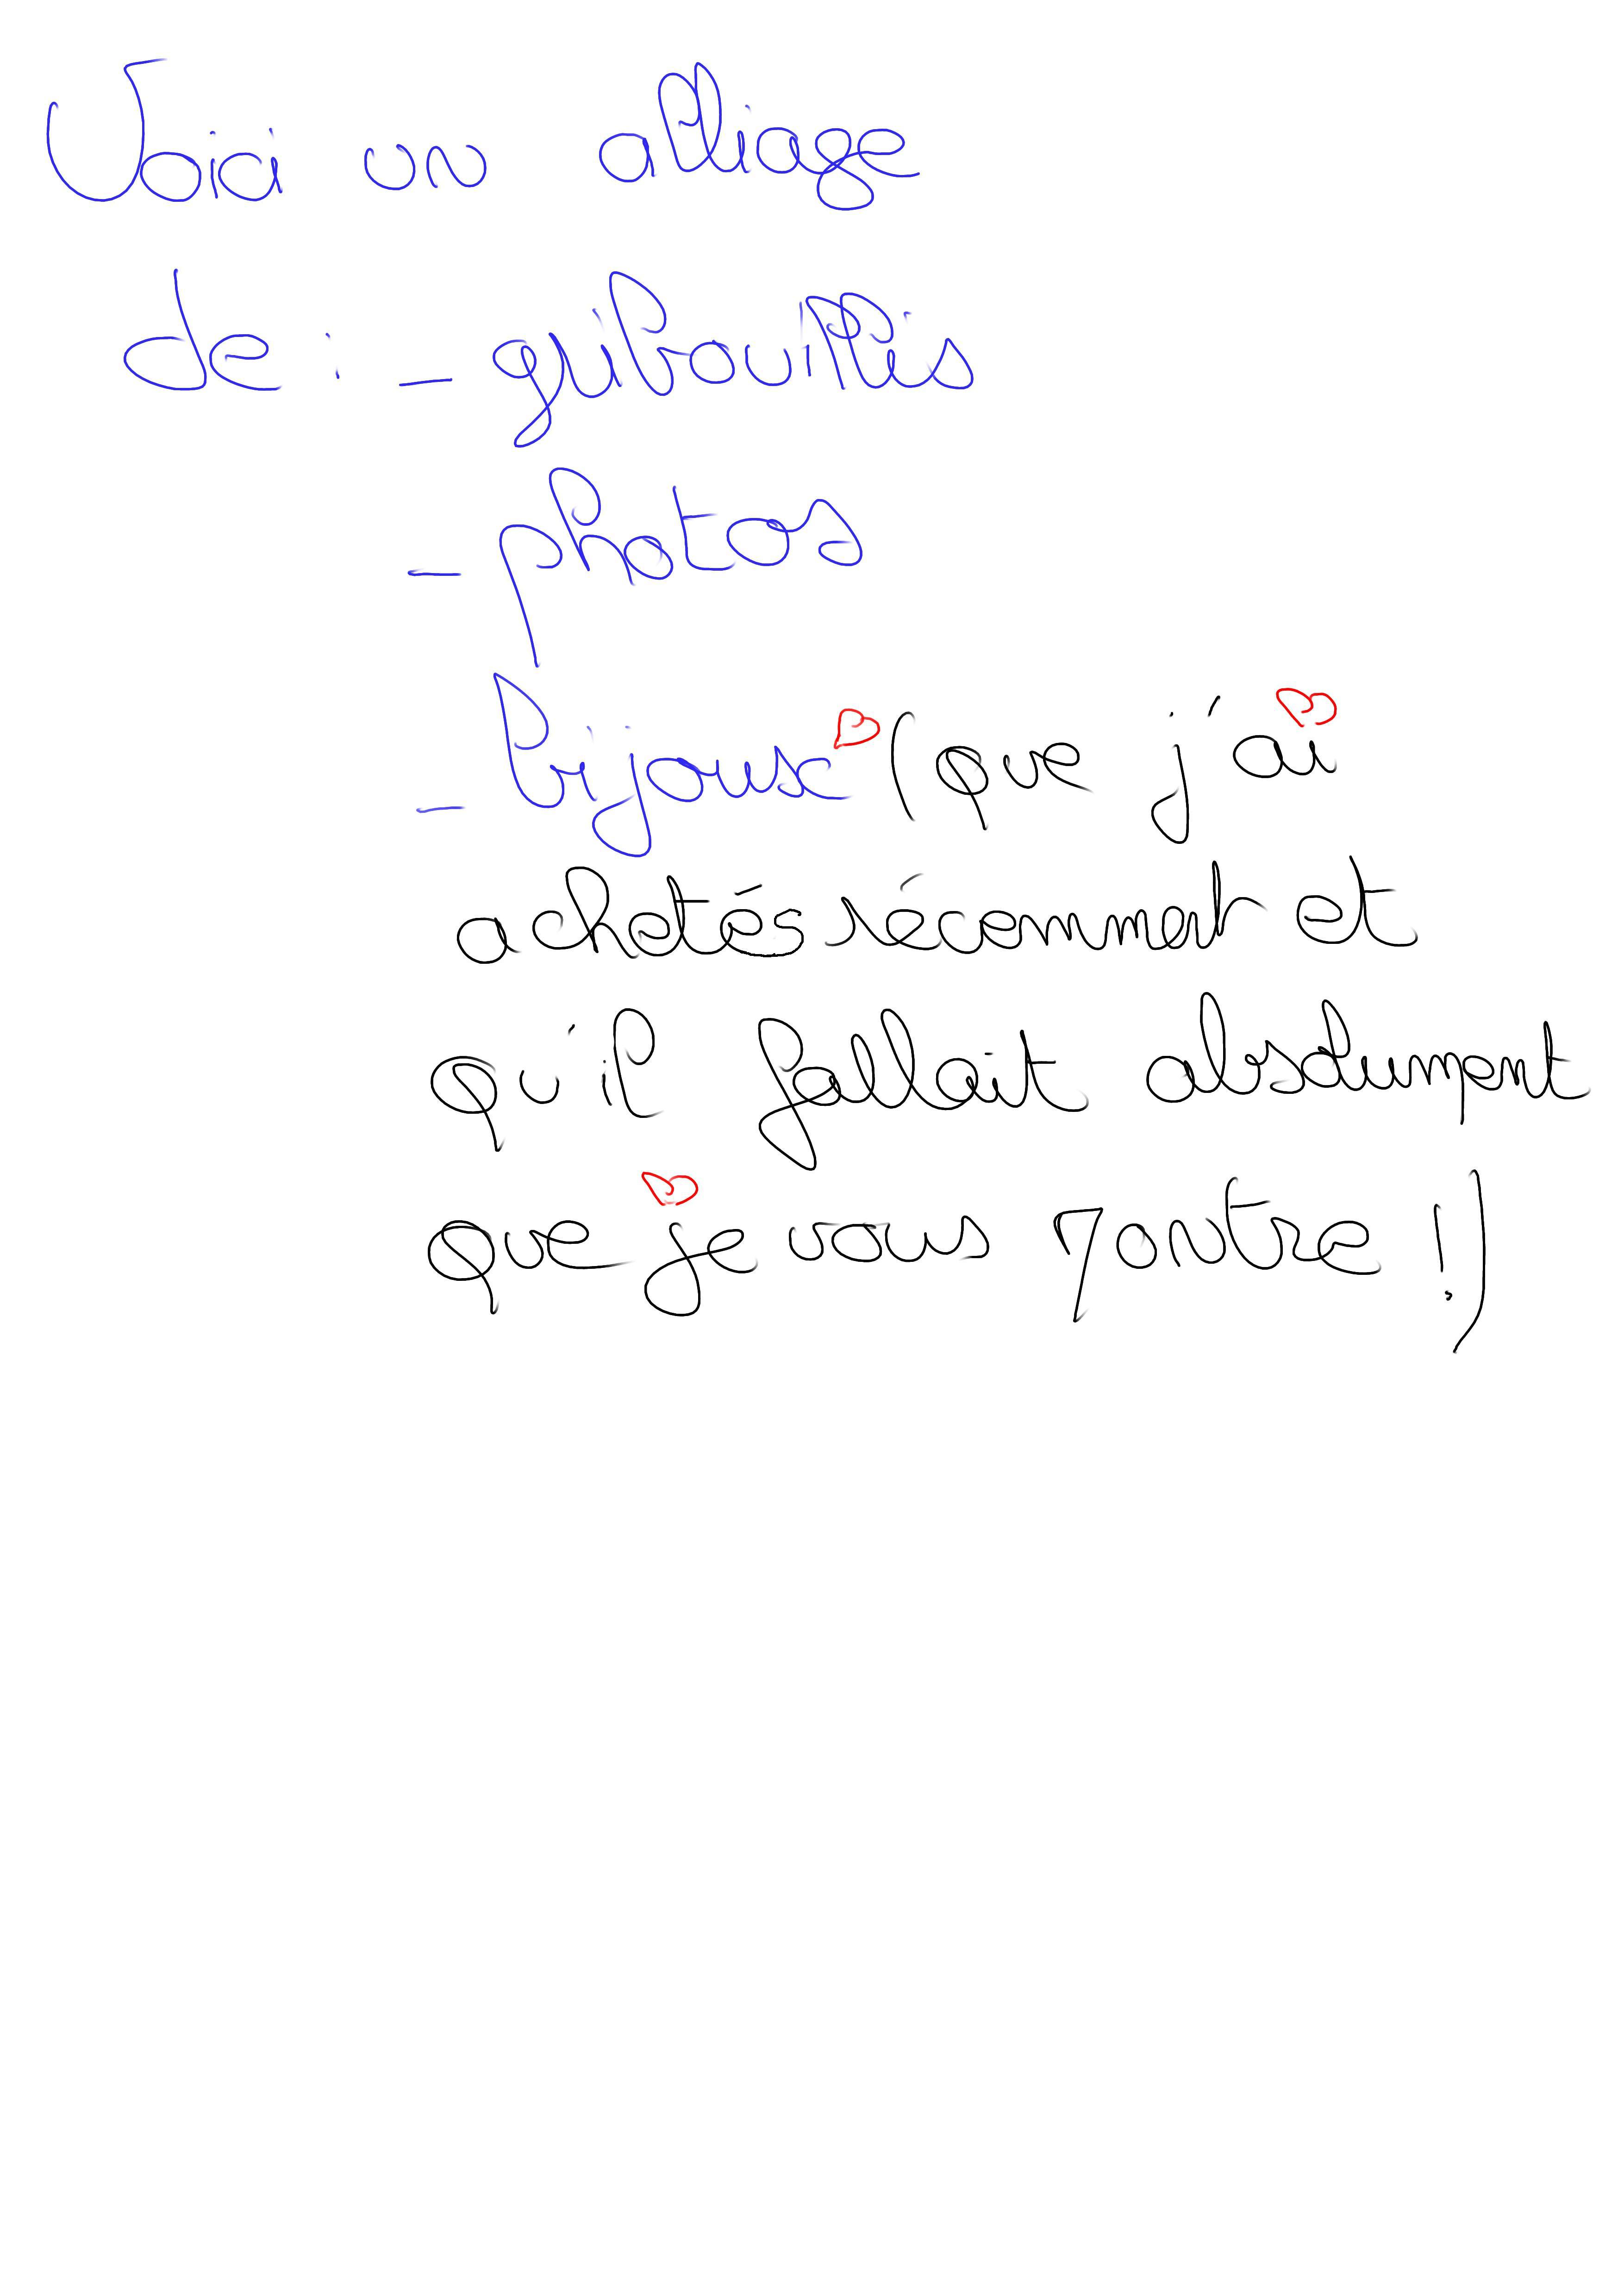 Voici un alliage
de : - gribouillis
- photos
- bijoux (que j'ai
achetés récemment et
qu'il fallait absolument
que je vous montre !)